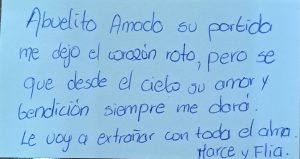 Abuelito Amado su partida
me dejo el corazón roto, pero se
que desde el cielo su amor y
bendición siempre me dará.
Le voy a extrañar con toda el alma.
Harce y Flia.